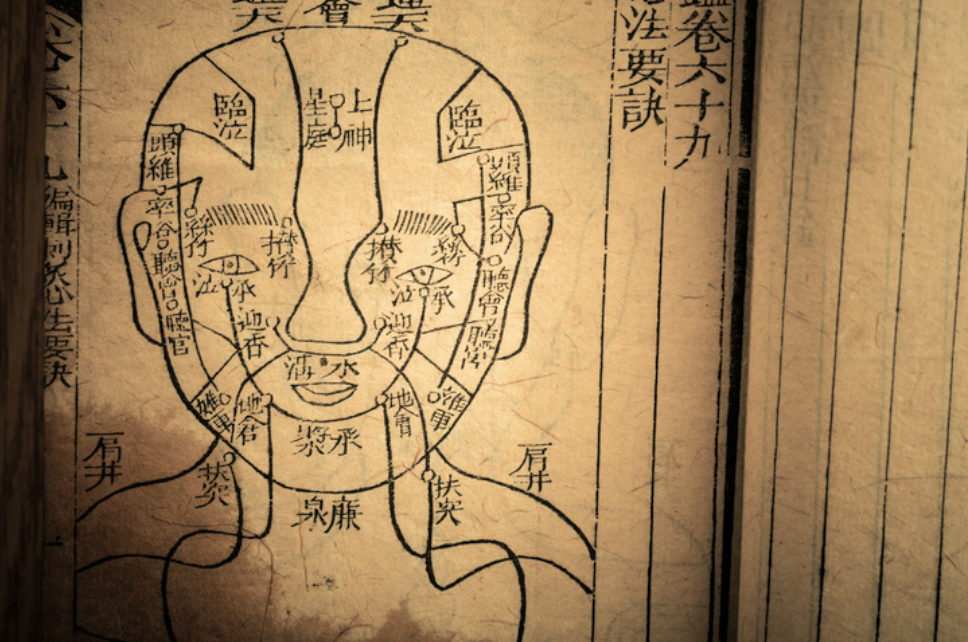 鑑卷六十九
法要訣
通天
會
通天
臨泣
上神
星庭
臨泣
頭維
頭維
率谷
率谷
絲竹
攢竹
攢竹
絲竹
聽會
聽會
承泣
承泣
聽宮
迎香
迎香
水溝
地倉
承漿
廉泉
扶突
扶突
肩井
肩井
編輯刺灸心法要訣